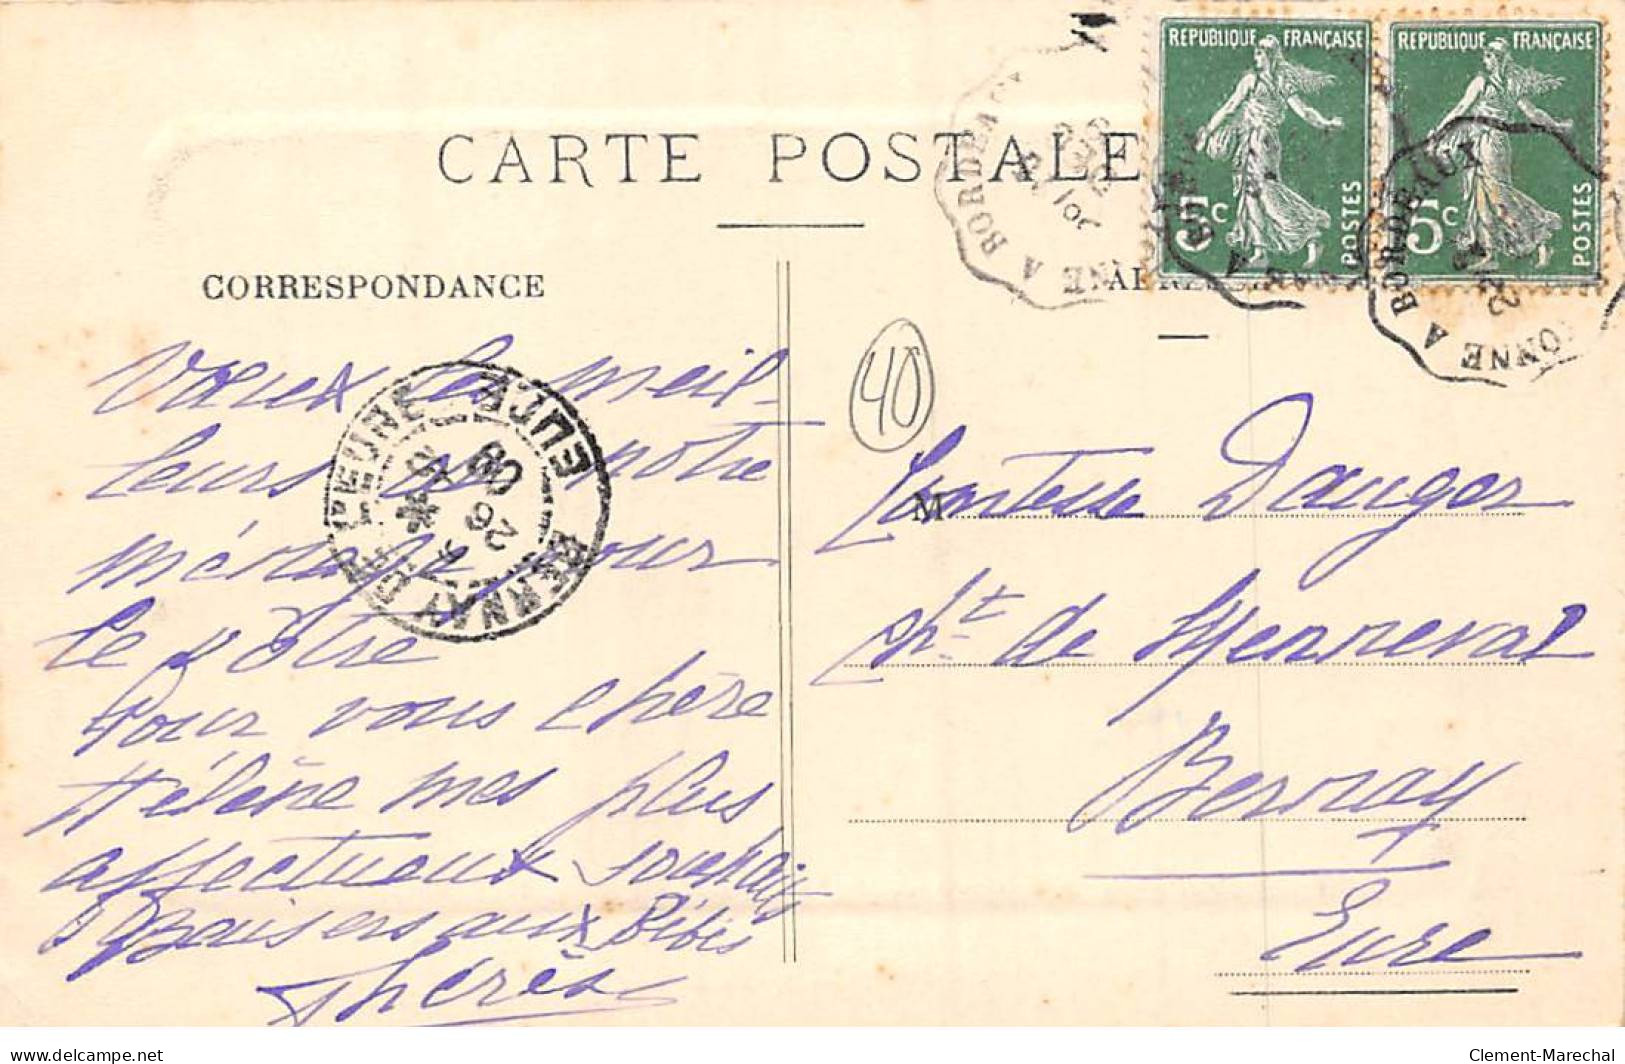 CARTE POSTALE
CORRESPONDANCE
REPUBLIQUE FRANÇAISE
5c
POSTES
REPUBLIQUE FRANÇAISE
5c
POSTES
A BORDEAUX
ONNE A BORDEAUX
22
40
BERNAY EURE
26
09
Vœux les meil-
leurs de notre
ménage pour
le vôtre
Pour vous chère
Hélène mes plus
affectueux souhaits
Baisers aux Bébés
Thérèse
M
Comtesse Dauger
cht de Menneval
Bernay
Eure
delcampe.net
Clement-Marechal